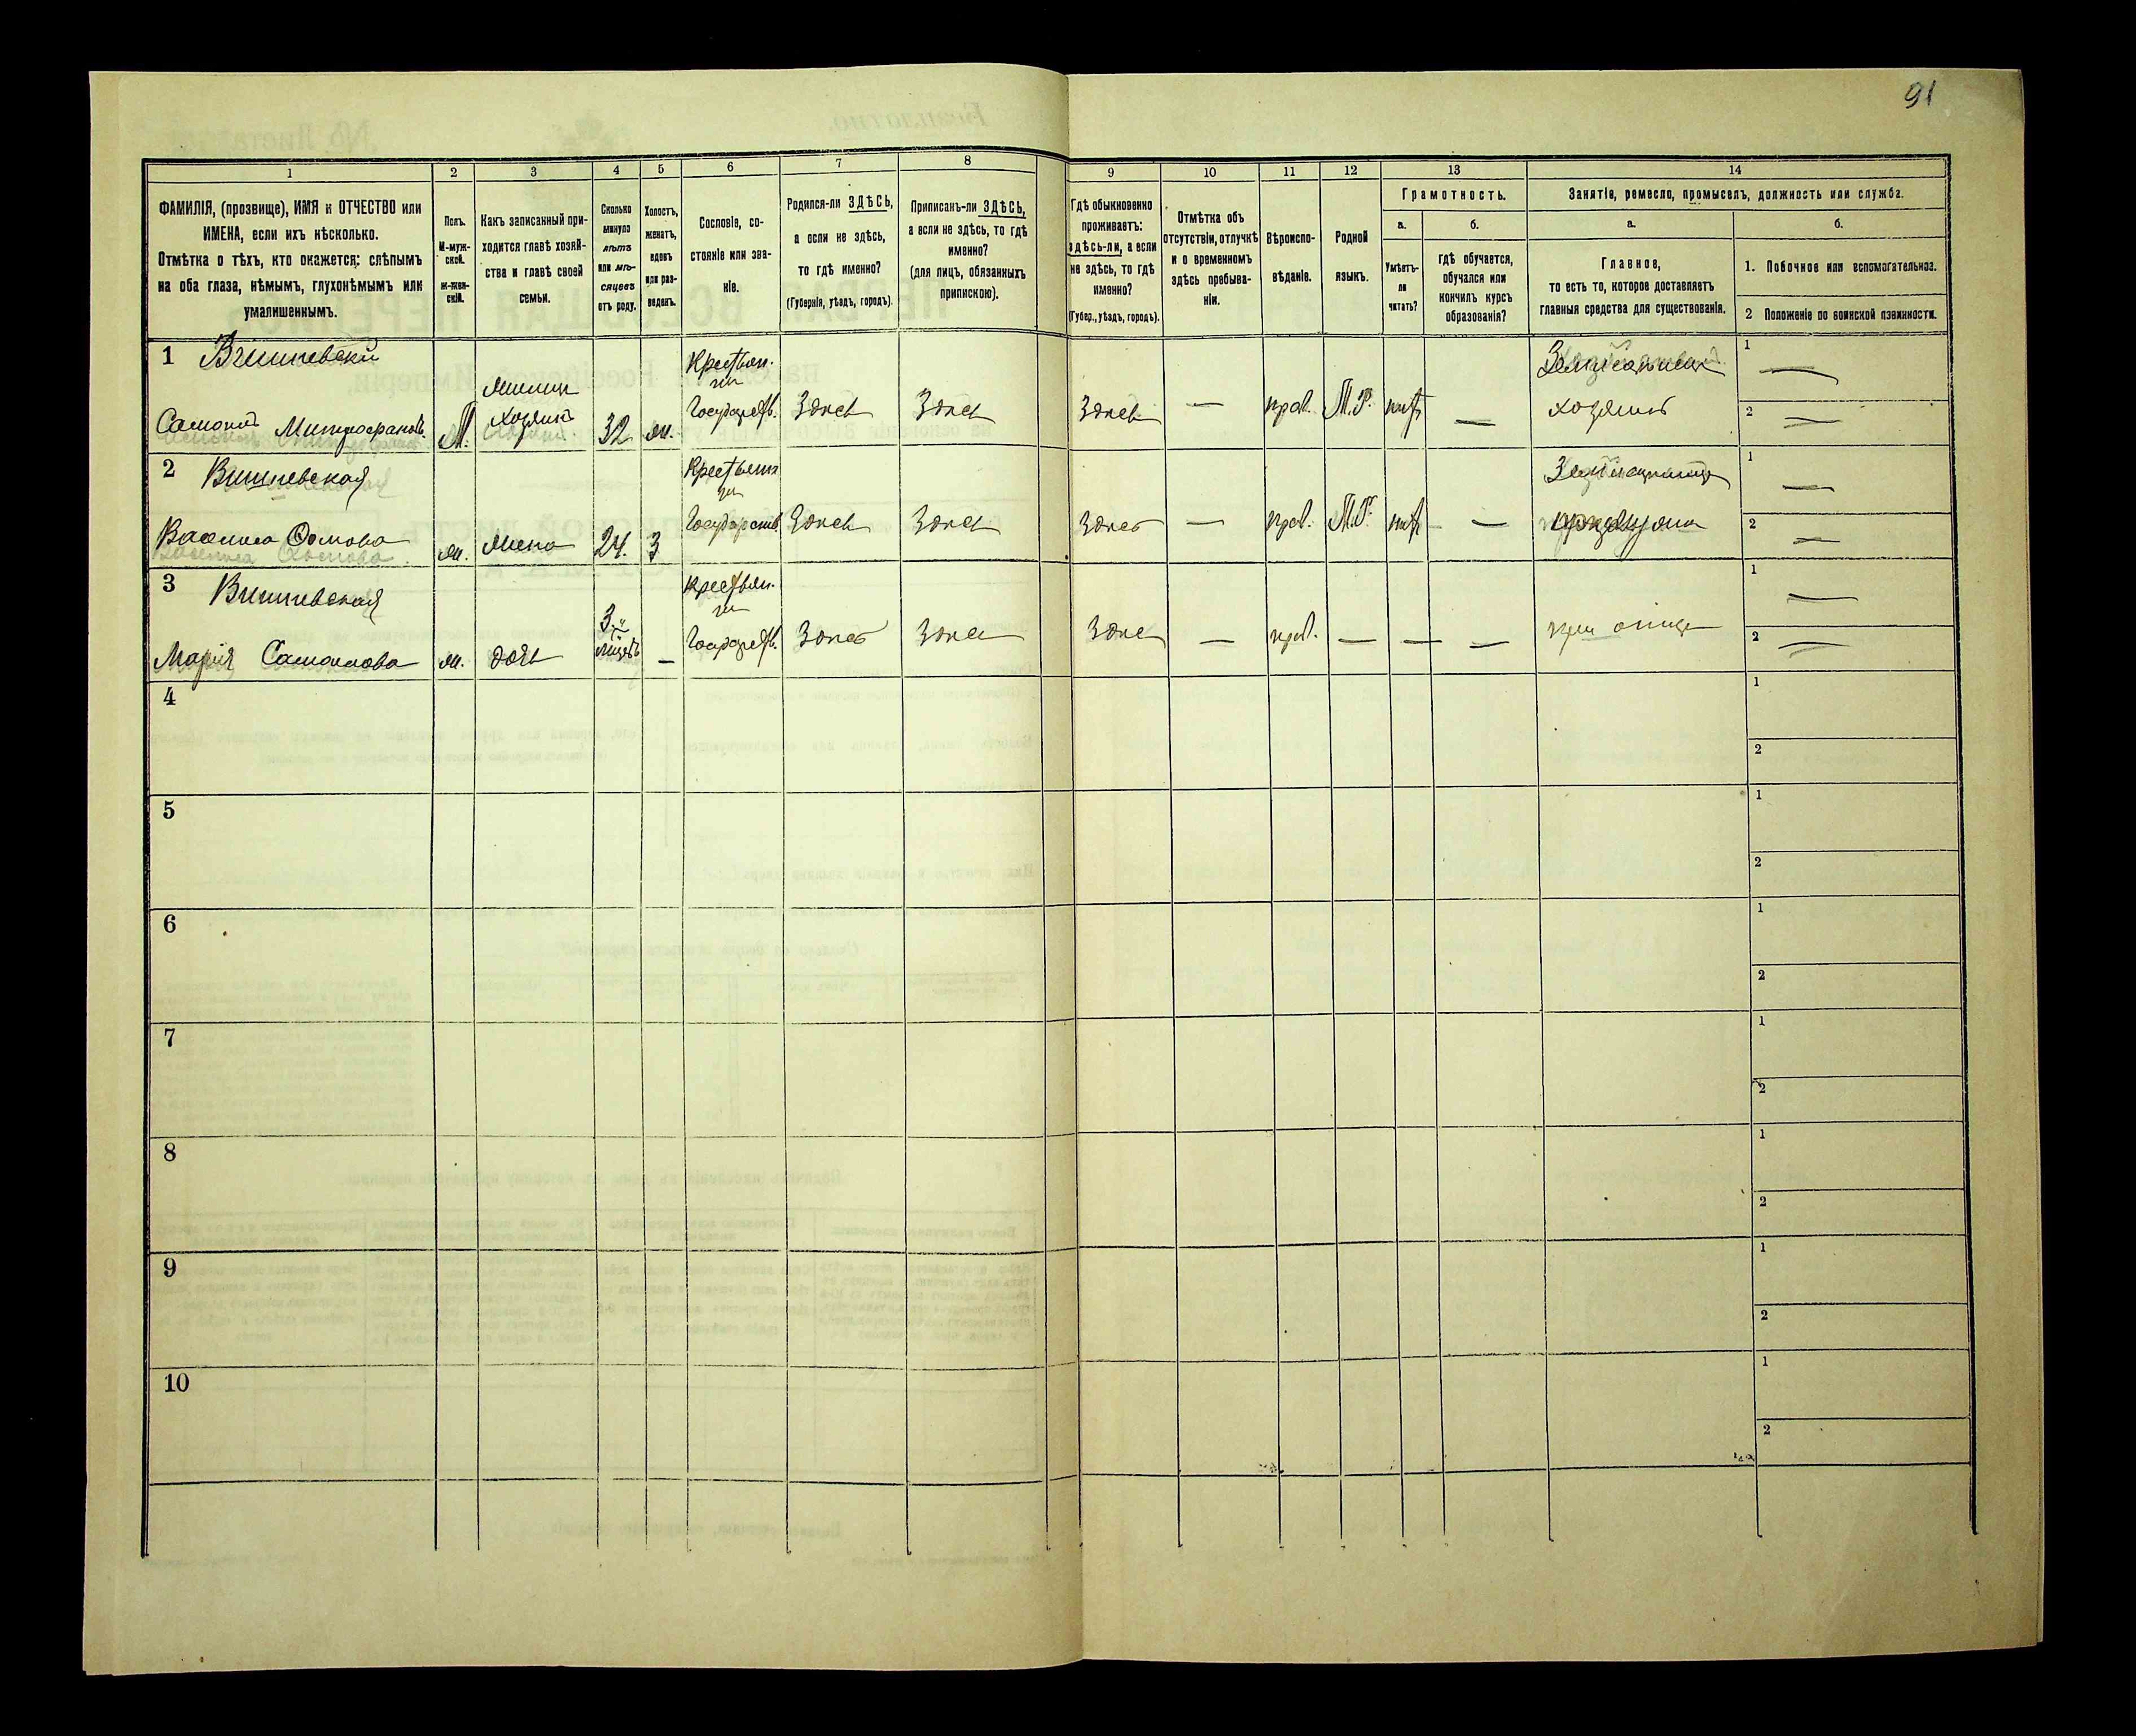 91
1 2 3 4 5 6 7 8 9 10 11 12 13 14
ФАМИЛІЯ, (прозвище), ИМЯ и ОТЧЕСТВО или
ИМЕНА, если ихъ нѣсколько.
Отмѣтка о тѣхъ, кто окажется: слѣпымъ
на оба глаза, нѣмымъ, глухонѣмымъ или
умалишеннымъ.
Полъ.
М-муж-
ской.
ж-жен-
скій.
Какъ записанный при-
ходится главѣ хозяй-
ства и главѣ своей
семьи.
Сколько
минуло
лѣтъ
или мѣ-
сяцевъ
отъ роду.
Холостъ,
женатъ,
вдовъ
или раз-
веденъ.
Сословіе, со-
стояніе или зва-
ніе.
Родился-ли ЗДѢСЬ,
а если не здѣсь,
то гдѣ именно?
(Губернія, уѣздъ, городъ).
Приписанъ-ли ЗДѢСЬ,
а если не здѣсь, то гдѣ
именно?
(для лицъ, обязанныхъ
припискою).
Гдѣ обыкновенно
проживаетъ:
здѣсь-ли, а если
не здѣсь, то гдѣ
именно?
(Губер., уѣздъ, городъ).
Отмѣтка объ
отсутствіи, отлучкѣ
и о временномъ
здѣсь пребыва-
ніи.
Вѣроиспо-
вѣданіе.
Родной
языкъ.
Грамотность.
а.
Умѣетъ-
ли
читать?
б.
гдѣ обучается,
обучался или
кончилъ курсъ
образованія?
Занятіе, ремесло, промыселъ, должность или служба.
а.
Главное,
то есть то, которое доставляетъ
главныя средства для существованія.
б.
1. Побочное или вспомогательное.
2 Положеніе по воинской повинности.
1 Вишневскій
Самоилъ Митрофановъ. М. хозяинъ 32 ж. Крестьян. Государств. Здѣсь Здѣсь Здѣсь — прав. М.Р. нѣтъ — хозяинъ
1 —
2 —
2 Вишневская
Василиса Фомова ж. жена 24. З Государств. Здѣсь Здѣсь Здѣсь — прав. М.Р. нѣтъ —
1 —
2 —
3 Вишневская
Марія Самоилова ж. дочь 3 — Крестьян. Государств. Здѣсь Здѣсь Здѣсь — прав. — — — при отцѣ
1 —
2 —
4 1
2
5 1
2
6 1
2
7 1
2
8 1
2
9 1
2
10 1
2